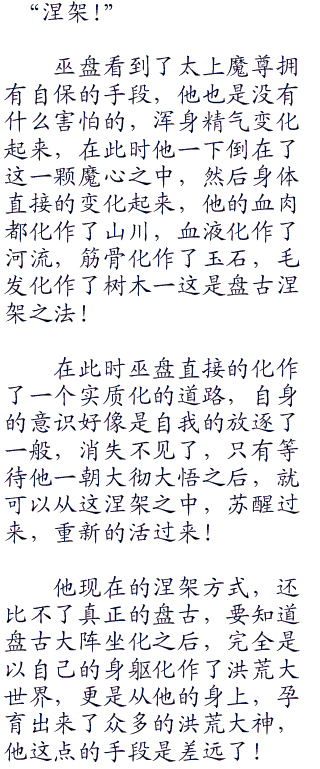 “涅架！”
巫盘看到了太上魔尊拥
有自保的手段，他也是没有
什么害怕的，浑身精气变化
起来，在此时他一下倒在了
这一颗魔心之中，然后身体
直接的变化起来，他的血肉
都化作了山川，血液化作了
河流，筋骨化作了玉石，毛
发化作了树木一这是盘古涅
架之法！
在此时巫盘直接的化作
了一个实质化的道路，自身
的意识好像是自我的放逐了
一般，消失不见了，只有等
待他一朝大彻大悟之后，就
可以从这涅架之中，苏醒过
来，重新的活过来！
他现在的涅架方式，还
比不了真正的盘古，要知道
盘古大阵坐化之后，完全是
以自己的身躯化作了洪荒大
世界，更是从他的身上，孕
育出来了众多的洪荒大神，
他这点的手段是差远了！